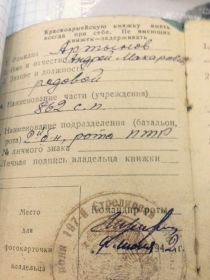 Красноармейскую книжку иметь
всегда при себе. Не имеющих
книжки—задерживать.
1. Фамилия
Имя и отчество Андрей Макарович
Звание и должность
рядовой
Наименование части (учреждения)
852 с.п.
Наименование подразделения (батальон,
рота) 2 б-н, рота ПТР
№ личного знака
Личная подпись владельца книжки
Место
для
фотокарточки
владельца
Командир роты
194 2 г.